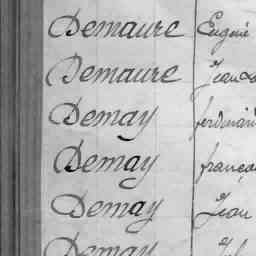 Demaure Eugène
Demaure Jean
Demay ferdinand
Demay françois
Demay Jean
Demay